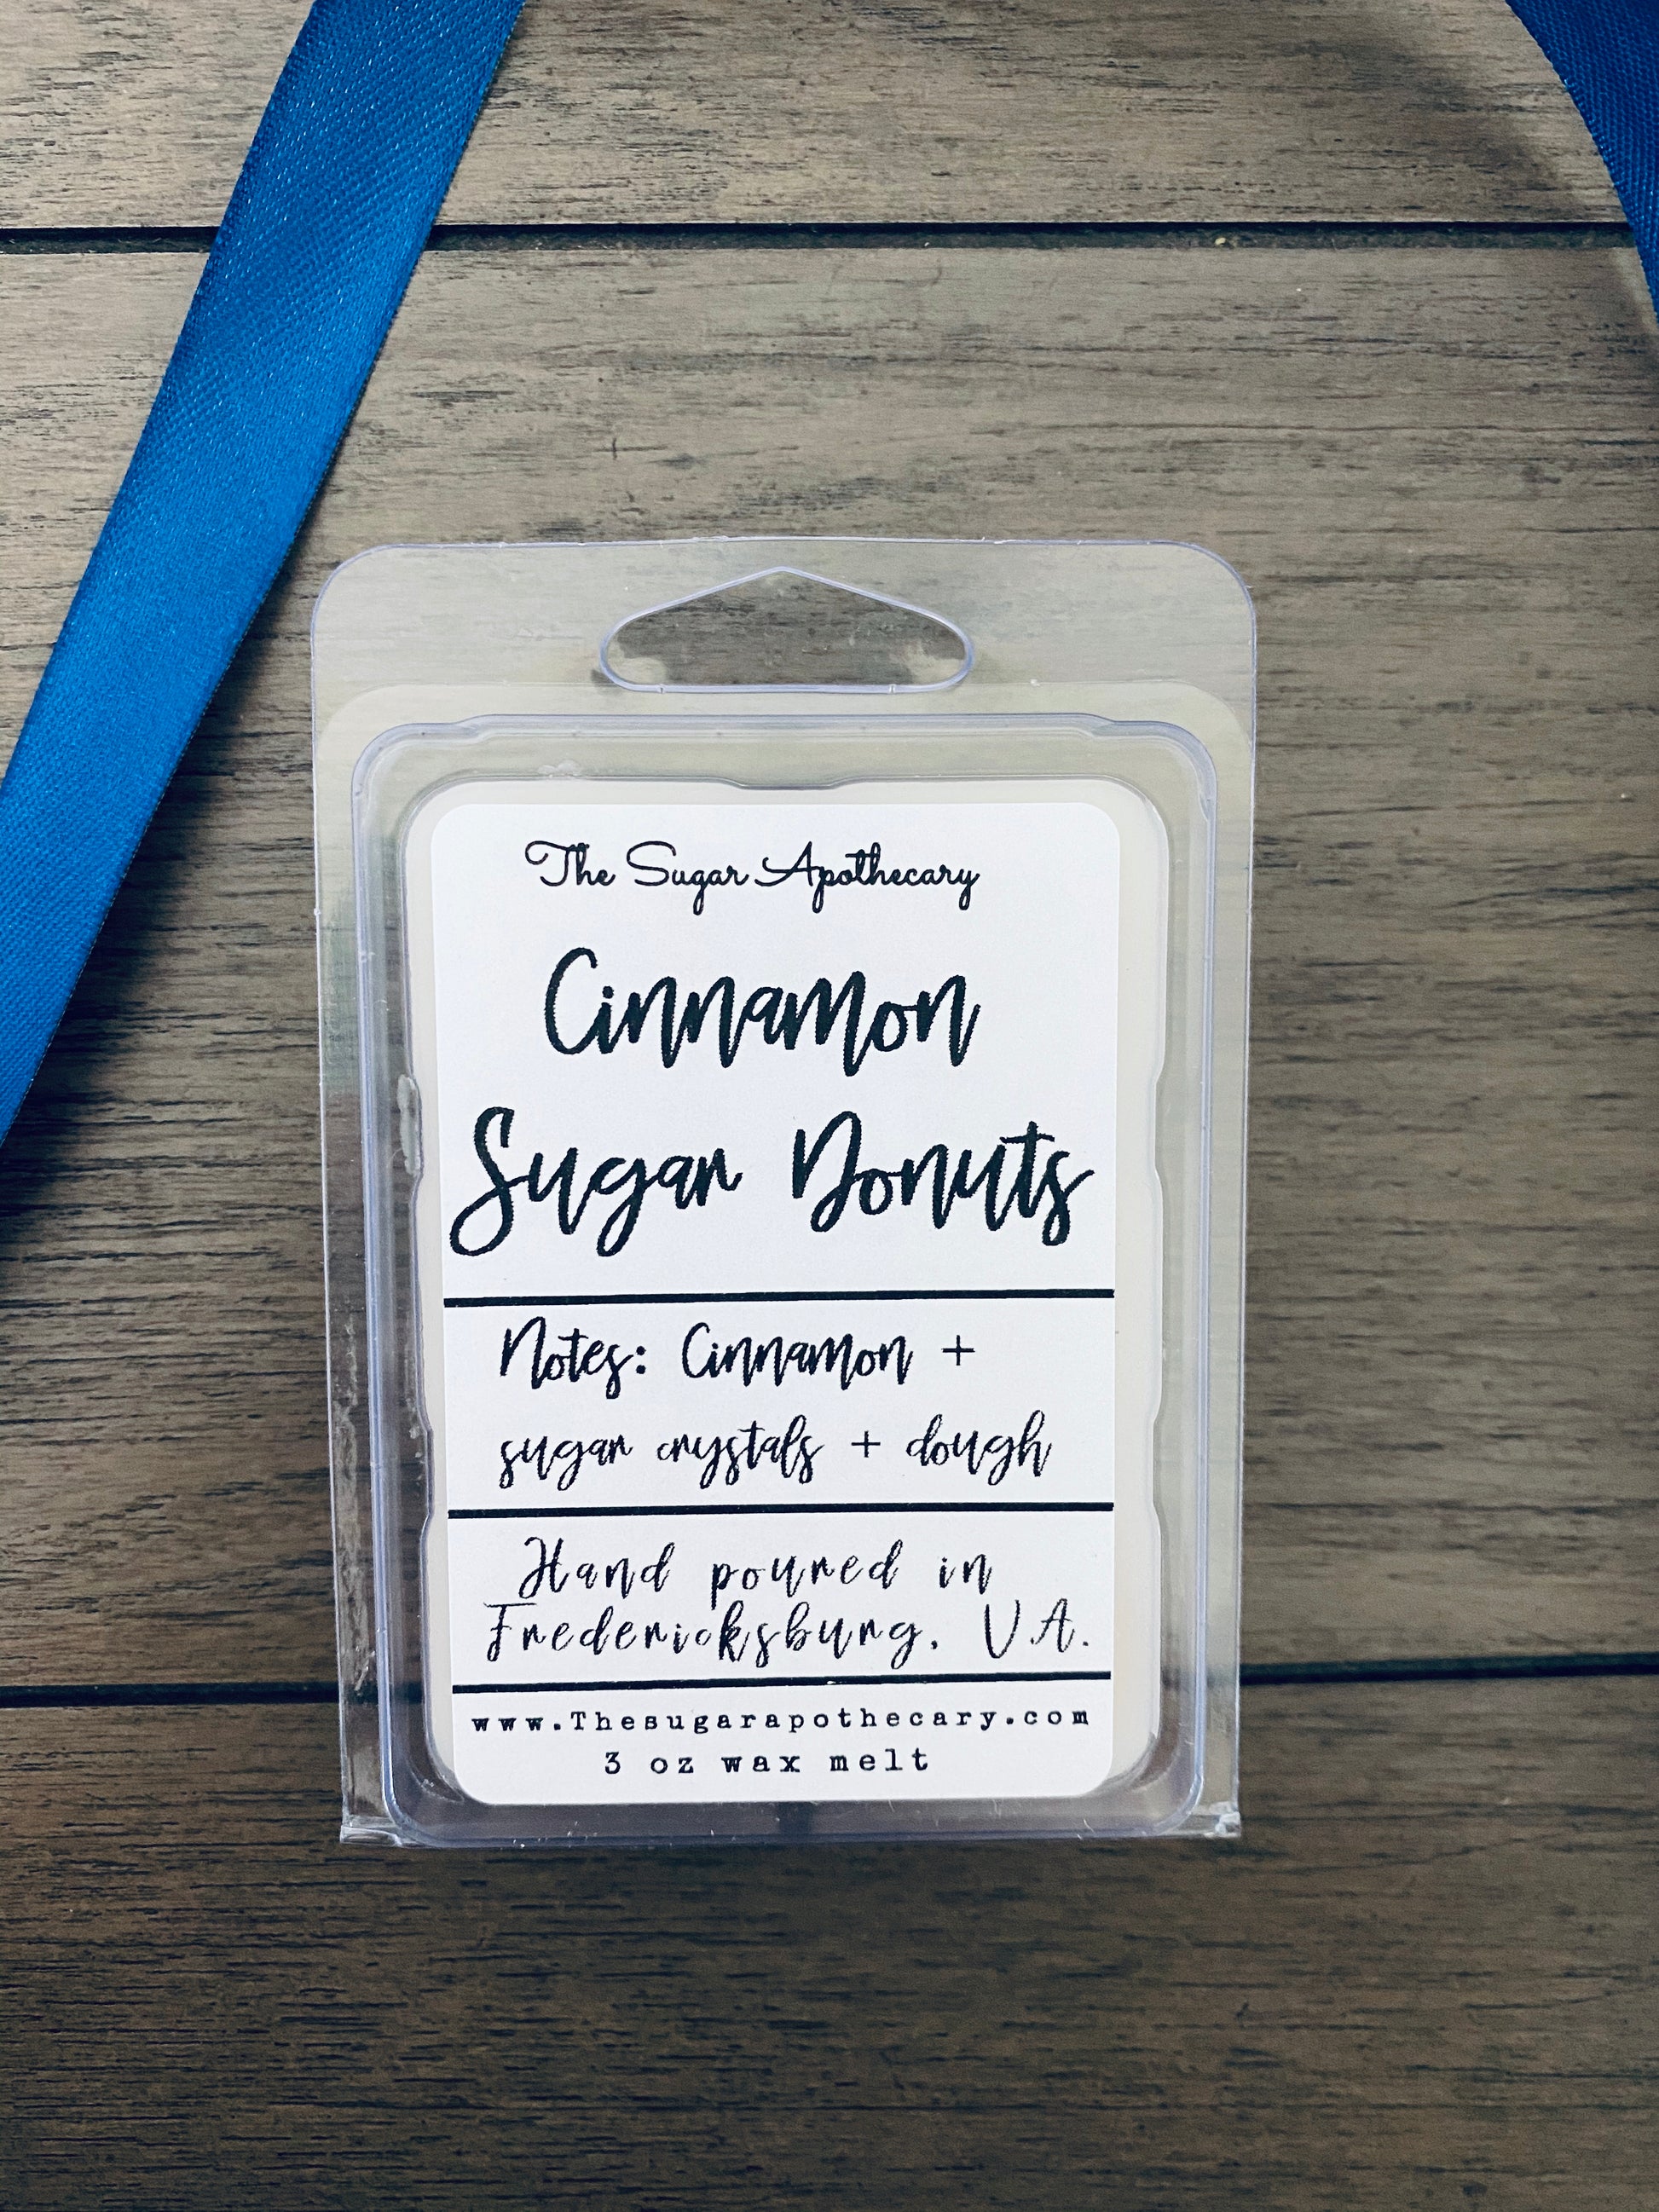 The Sugar Apothecary
Cinnamon
Sugar Donuts
Notes: Cinnamon +
sugar crystals + dough
Hand poured in
Fredericksburg, VA.
www.Thesugarapothecary.com
3 oz wax melt